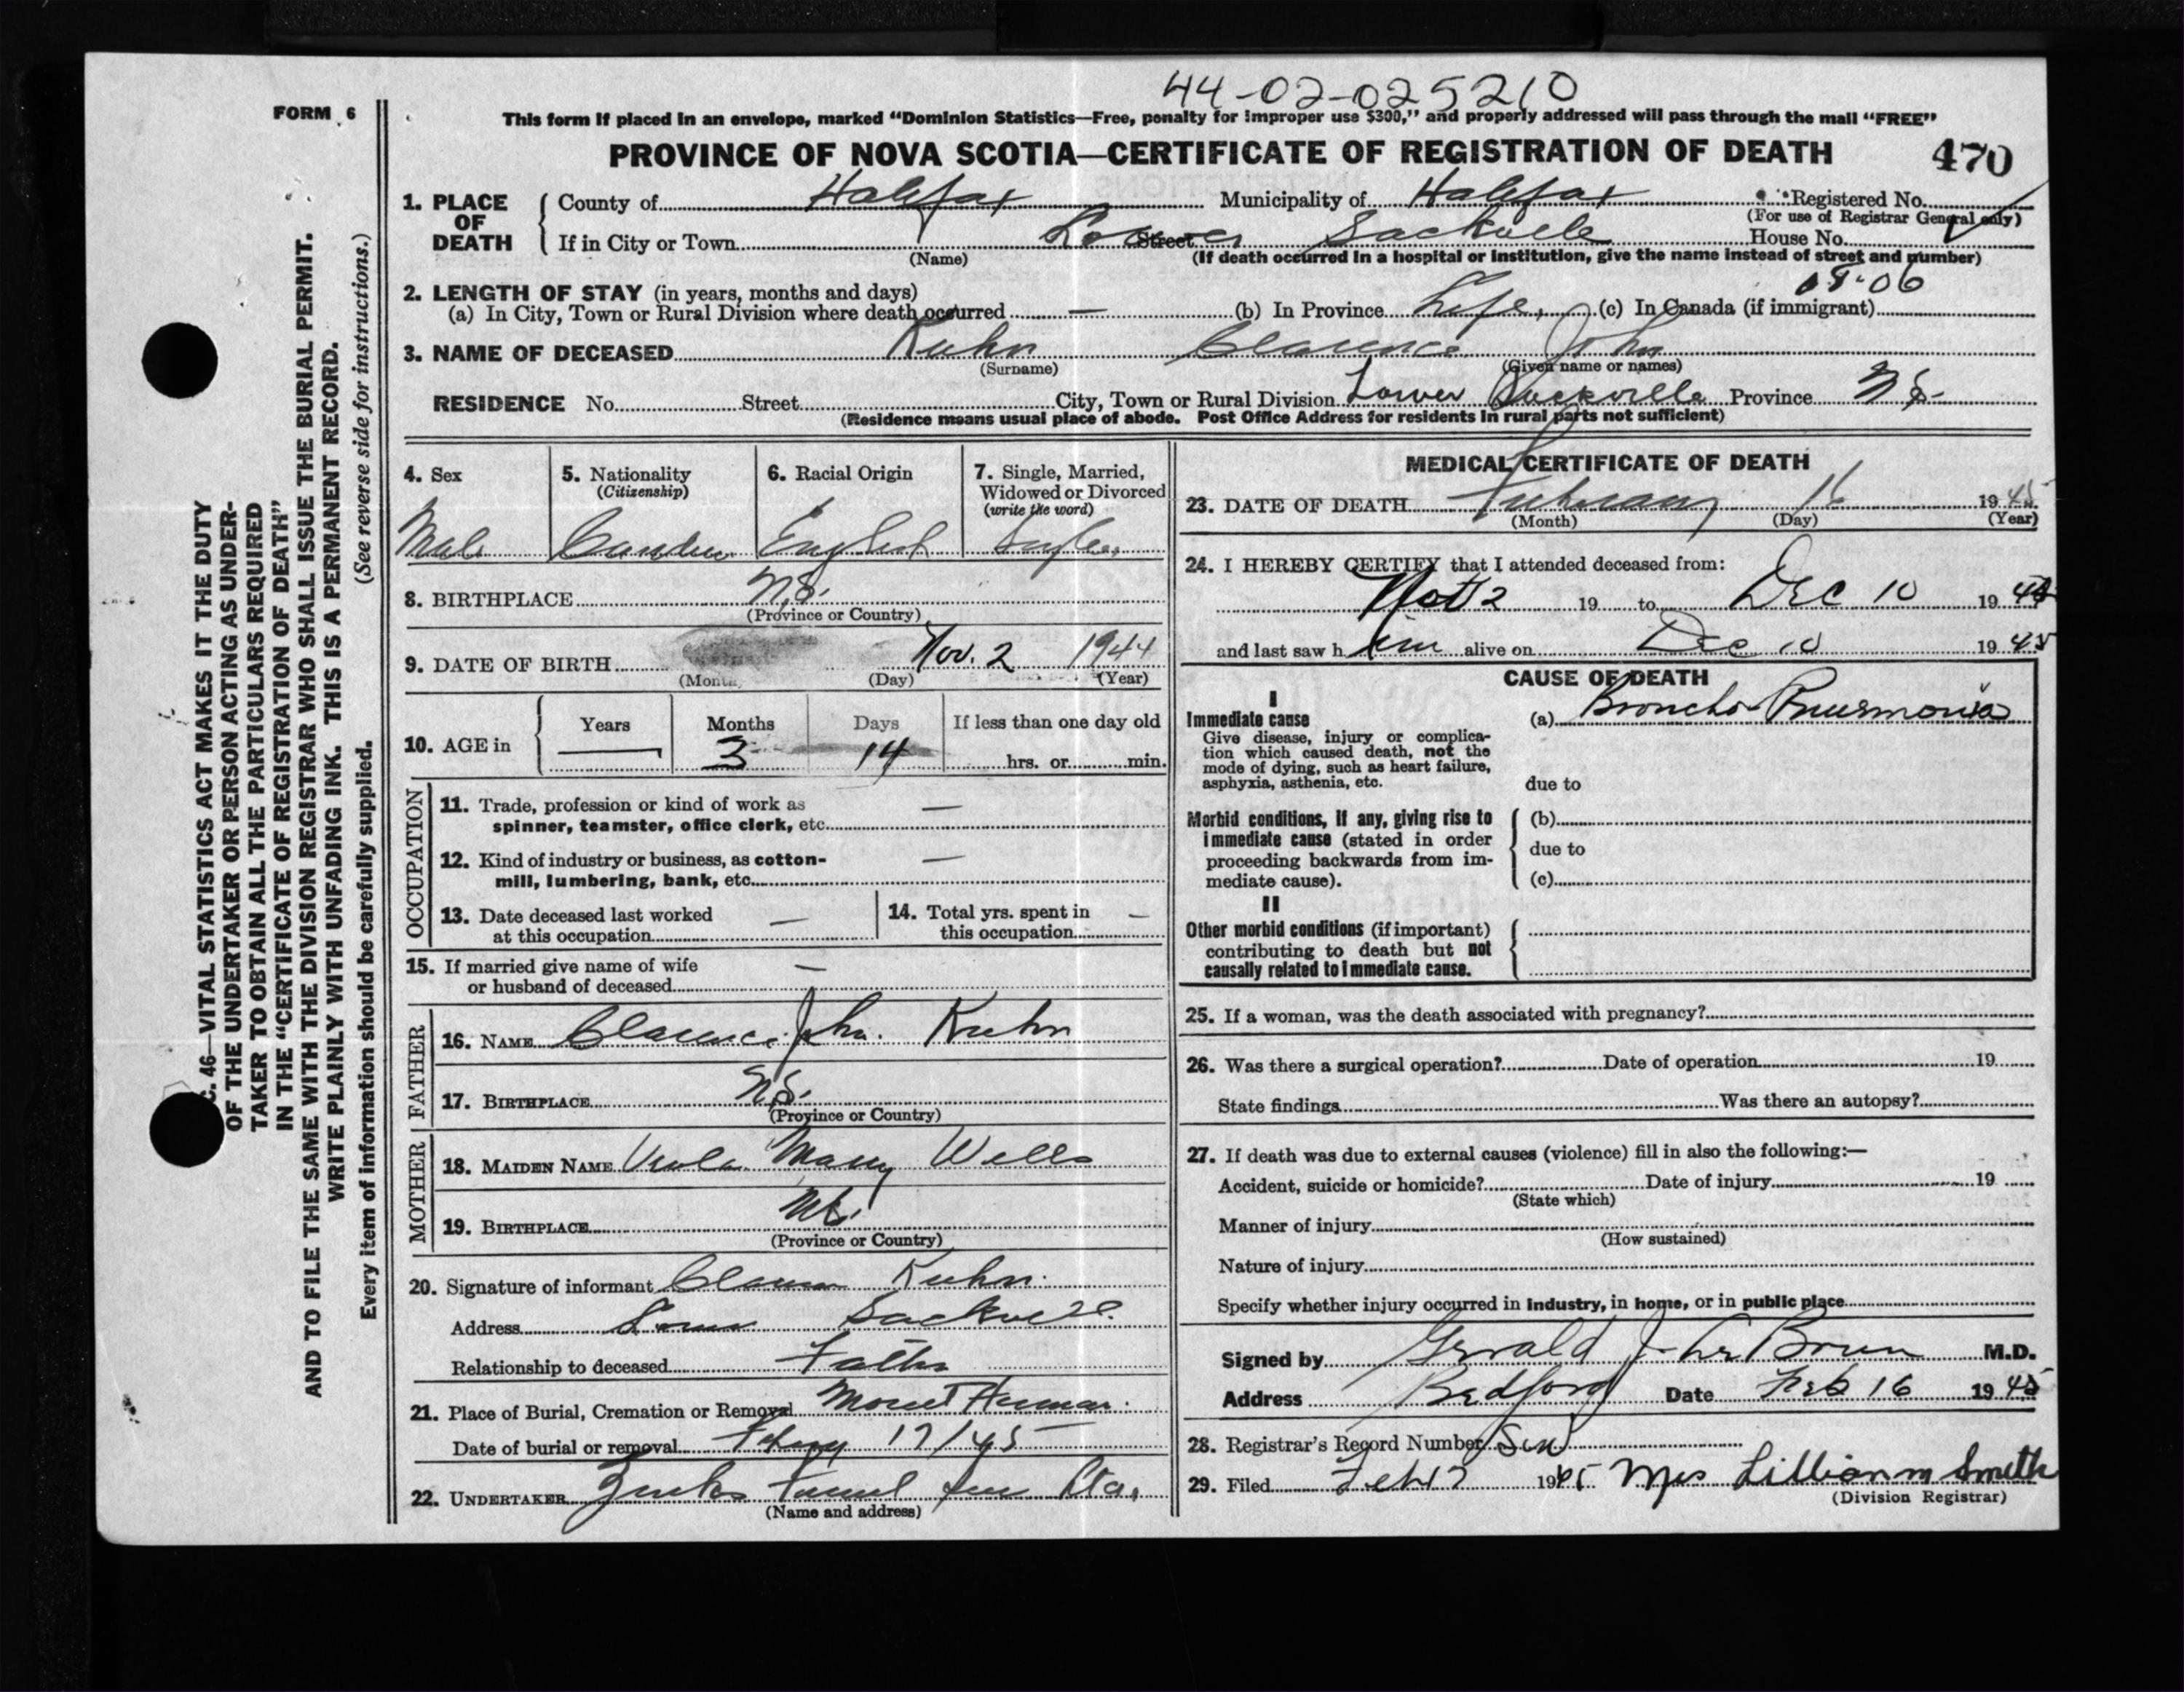 44-02-025210
FORM 6
This form if placed in an envelope, marked "Dominion Statistics—Free, penalty for improper use $300," and properly addressed will pass through the mail "FREE"
PROVINCE OF NOVA SCOTIA—CERTIFICATE OF REGISTRATION OF DEATH 470
1. PLACE OF DEATH
County of Halifax Municipality of Halifax Registered No.
(For use of Registrar General only)
If in City or Town Street Lower Sackville House No.
(Name) (If death occurred in a hospital or institution, give the name instead of street and number)
08-06
2. LENGTH OF STAY (in years, months and days)
(a) In City, Town or Rural Division where death occurred — (b) In Province Life, (c) In Canada (if immigrant)
3. NAME OF DECEASED Kuhn Clarence John
(Surname) (Given name or names)
RESIDENCE No. Street City, Town or Rural Division Lower Sackville Province N S.
(Residence means usual place of abode. Post Office Address for residents in rural parts not sufficient)
4. Sex
Male
5. Nationality
(Citizenship)
6. Racial Origin
English
7. Single, Married,
Widowed or Divorced
(write the word)
Single
8. BIRTHPLACE N.S.
(Province or Country)
9. DATE OF BIRTH Nov. 2 1944
(Month) (Day) (Year)
10. AGE in
Years Months Days If less than one day old
— 3 14 hrs. or min.
OCCUPATION
11. Trade, profession or kind of work as —
spinner, teamster, office clerk, etc.
12. Kind of industry or business, as cotton- —
mill, lumbering, bank, etc.
13. Date deceased last worked —
at this occupation
14. Total yrs. spent in —
this occupation
15. If married give name of wife —
or husband of deceased
FATHER
16. NAME Clarence John Kuhn
17. BIRTHPLACE N.S.
(Province or Country)
MOTHER
18. MAIDEN NAME Viola Mary Wells
19. BIRTHPLACE
(Province or Country)
20. Signature of informant Kuhn.
Address Lower Sackville
Relationship to deceased Father
21. Place of Burial, Cremation or Removal Mount
Date of burial or removal 17/45
22. UNDERTAKER
(Name and address)
MEDICAL CERTIFICATE OF DEATH
23. DATE OF DEATH February 16 1945
(Month) (Day) (Year)
24. I HEREBY CERTIFY that I attended deceased from:
2 19 to Dec 10 19
and last saw him alive on Dec 10 1945
CAUSE OF DEATH
I
Immediate cause
Give disease, injury or complica-
tion which caused death, not the
mode of dying, such as heart failure,
asphyxia, asthenia, etc.
(a) Broncho-Pneumonia
due to
Morbid conditions, if any, giving rise to
immediate cause (stated in order
proceeding backwards from im-
mediate cause).
(b)
due to
(c)
II
Other morbid conditions (if important)
contributing to death but not
causally related to immediate cause.
25. If a woman, was the death associated with pregnancy?
26. Was there a surgical operation? Date of operation 19
State findings Was there an autopsy?
27. If death was due to external causes (violence) fill in also the following:—
Accident, suicide or homicide? Date of injury 19
(State which)
Manner of injury
(How sustained)
Nature of injury
Specify whether injury occurred in industry, in home, or in public place
Signed by Gerald J. LeBrun M.D.
Address Bedford Date Feb 16 1945
28. Registrar's Record Number Six
29. Filed Feb 17 1945 Mrs Lillian M Smith
(Division Registrar)
C. 46—VITAL STATISTICS ACT MAKES IT THE DUTY
OF THE UNDERTAKER OR PERSON ACTING AS UNDER-
TAKER TO OBTAIN ALL THE PARTICULARS REQUIRED
IN THE "CERTIFICATE OF REGISTRATION OF DEATH"
AND TO FILE THE SAME WITH THE DIVISION REGISTRAR WHO SHALL ISSUE THE BURIAL PERMIT.
WRITE PLAINLY WITH UNFADING INK. THIS IS A PERMANENT RECORD.
Every item of information should be carefully supplied. (See reverse side for instructions.)